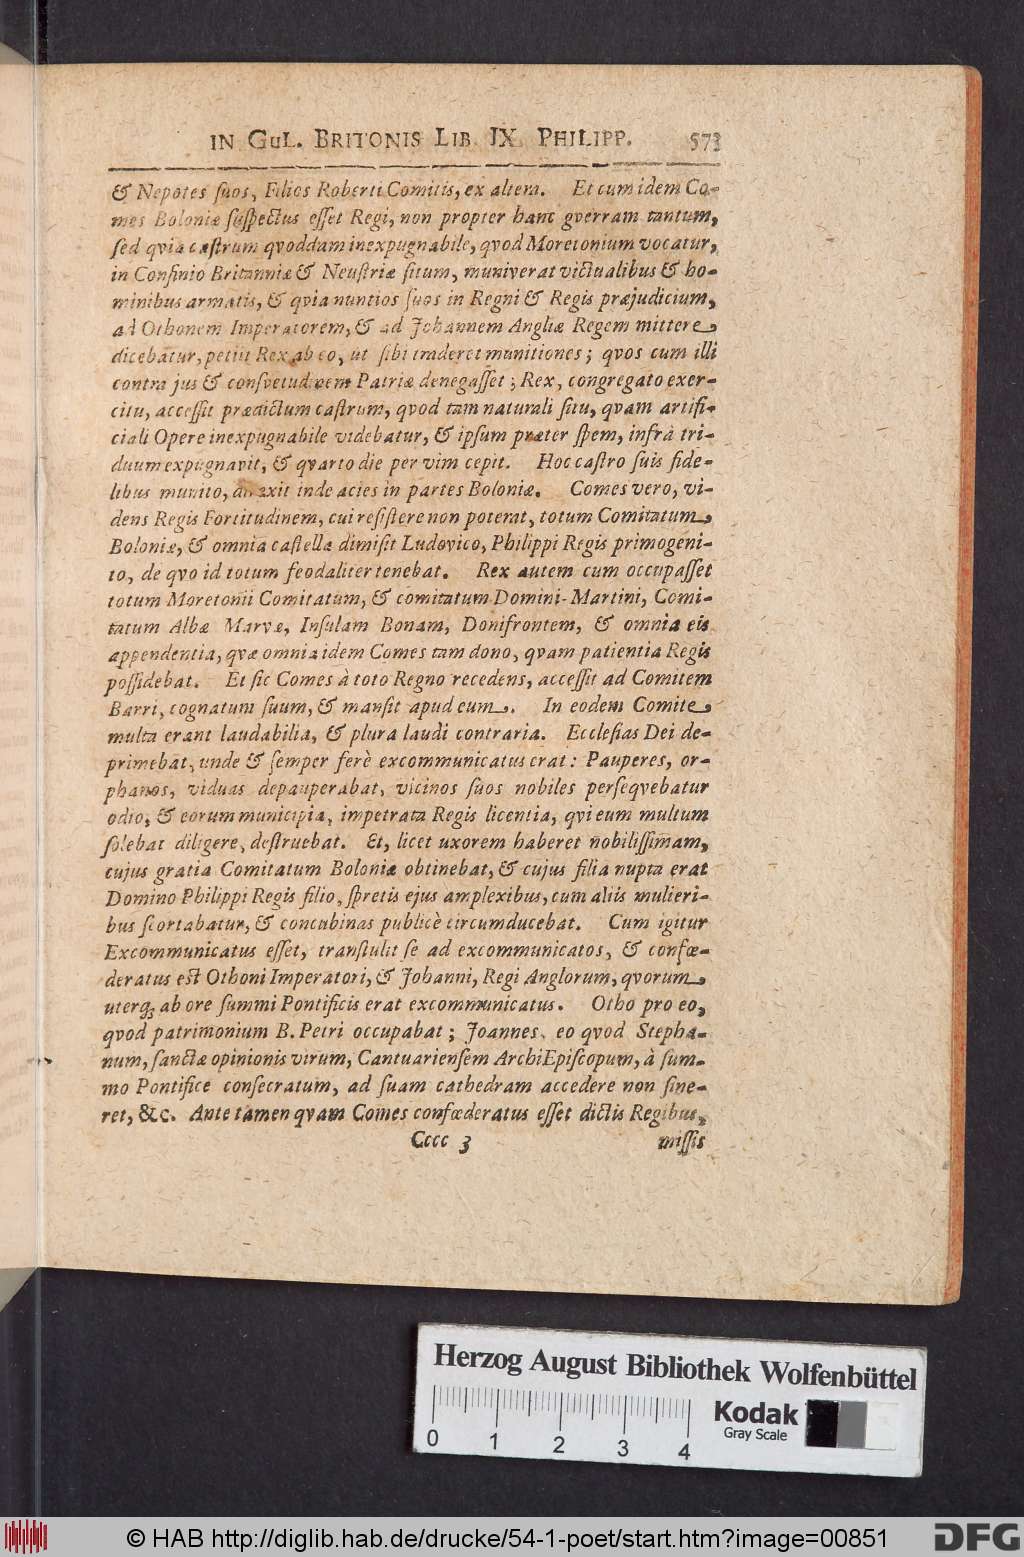 IN GUL. BRITONIS LIB. IX. PHILIPP. 573
& Nepotes ſuos, Filios Roberti Comitis, ex altera. Et cum idem Co-
mes Boloniæ ſuſpectus eſſet Regi, non propter hanc gverram tantum,
ſed qvia caſtrum qvoddam inexpugnabile, qvod Moretonium vocatur,
in Confinio Britanniæ & Neuſtriæ ſitum, muniverat victualibus & ho-
minibus armatis, & qvia nuntios ſuos in Regni & Regis præjudicium,
ad Othonem Imperatorem, & ad Johannem Angliæ Regem mittere
dicebatur, petiit Rex ab eo, ut ſibi traderet munitiones; qvos cum illi
contra jus & conſvetudinem Patriæ denegaſſet; Rex, congregato exer-
citu, acceſſit prædictum caſtrum, qvod tam naturali ſitu, qvam artifi-
ciali Opere inexpugnabile videbatur, & ipſum præter ſpem, infrà tri-
duum expugnavit, & qvarto die per vim cepit. Hoc caſtro ſuis fide-
libus munito, direxit inde acies in partes Boloniæ. Comes vero, vi-
dens Regis Fortitudinem, cui reſiſtere non poterat, totum Comitatum
Boloniæ, & omnia caſtella dimiſit Ludovico, Philippi Regis primogeni-
to, de qvo id totum feodaliter tenebat. Rex autem cum occupaſſet
totum Moretonii Comitatum, & comitatum Domini-Martini, Comi-
tatum Albæ Marvæ, Inſulam Bonam, Donifrontem, & omnia eis
appendentia, qvæ omnia idem Comes tam dono, qvam patientia Regis
poſſidebat. Et ſic Comes à toto Regno recedens, acceſſit ad Comitem
Barri, cognatum ſuum, & manſit apud eum. In eodem Comite
multa erant laudabilia, & plura laudi contraria. Eccleſias Dei de-
primebat, unde & ſemper ferè excommunicatus erat: Pauperes, or-
phanos, viduas depauperabat, vicinos ſuos nobiles perſeqvebatur
odio, & eorum municipia, impetrata Regis licentia, qvi eum multum
ſolebat diligere, deſtruebat. Et, licet uxorem haberet nobiliſſimam,
cujus gratia Comitatum Boloniæ obtinebat, & cujus filia nupta erat
Domino Philippi Regis filio, ſpretis ejus amplexibus, cum aliis mulieri-
bus ſcortabatur, & concubinas publicè circumducebat. Cum igitur
Excommunicatus eſſet, tranſtulit ſe ad excommunicatos, & confœ-
deratus eſt Othoni Imperatori, & Johanni, Regi Anglorum, qvorum
uterq; ab ore ſummi Pontificis erat excommunicatus. Otho pro eo,
qvod patrimonium B. Petri occupabat; Joannes, eo qvod Stepha-
num, ſanctæ opinionis virum, Cantuarienſem ArchiEpiſcopum, à ſum-
mo Pontifice conſecratum, ad ſuam cathedram accedere non ſine-
ret, &c. Ante tamen qvam Comes confœderatus eſſet dictis Regibus,
Cccc 3 miſſis
Herzog August Bibliothek Wolfenbüttel
Kodak
Gray Scale
0 1 2 3 4
© HAB http://diglib.hab.de/drucke/54-1-poet/start.htm?image=00851
DFG